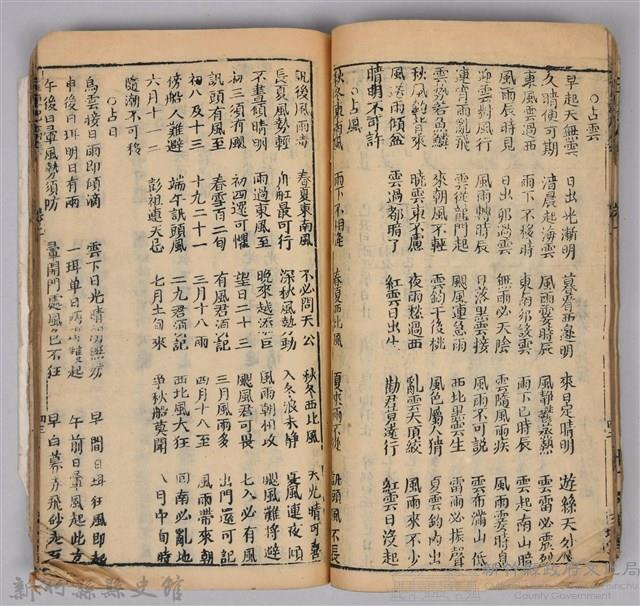 ○占雲
早起天無雲 日出光漸明 暮看西邊明 來日定晴明 遊絲天外飛
久晴便可期 清晨起海雲 風雨霎時辰 風靜鬱蒸熱 雲雷必震烈
東風雲過西 雨下不移時 東南卯沒雲 雨下巳時辰 雲起南山暗
風雨辰時見 日出卯過雲 無雨必天陰 雲隨風雨疾 風雨霎時息
迎雲對風行 風雨轉時辰 日落黑雲接 風雨不可說 雲布滿山低
連宵雨亂飛 雲從龍門起 颶風連急雨 西北黑雲生 雷雨必振聲
雲勢若魚鱗 來朝風不輕 雲鈎午後排 風色屬人猜 夏雲鈎內出
秋風鈎背來 曉雲東不慮 夜雨愁過西 亂雲天頂絞 風雨來不少
風送雨傾盆 雲過都暗了 紅雲日出生 勸君莫遠行 紅雲日沒起
晴明不可許
○占風
秋冬東南風 雨下不相逢 春夏西北風 夏來雨不從 訊頭風不長
訊後風雨毒 春夏東南風 不必問天公 秋冬西北風 天光晴可喜
長夏風勢輕 舟船最可行 深秋風勢動 入冬浪未靜 夏風連夜傾
不晝頓晴明 雨過東風至 晚來越添巨 風雨朝相攻 颶風難將避
初三須有颶 初四還可懼 望日二十三 颶風君可畏 七八必有風
訊頭有風至 春雪百二旬 有風君酒記 三月風雨多 出門還可記
初八及十三 十九二十一 三月十八雨 四月十八至 風雨帶來朝
傍船人難避 端午訊頭風 二九君酒記 西北風大狂 回南必亂地
六月十一二 彭祖連天忌 七月上旬來 爭秋船莫開 八月中旬時
隨潮不可移
○占日
烏雲接日雨即傾滴 雲下日光晴朗無妨 早間日珥狂風即起
申後日珥明日有雨 一珥單日兩珥雙起 午前日暈風起北方
午後日暈風勢須防 暈開門處風色不狂 早白暮赤飛砂走石
新竹縣縣史館
新竹縣政府文化局
County Government